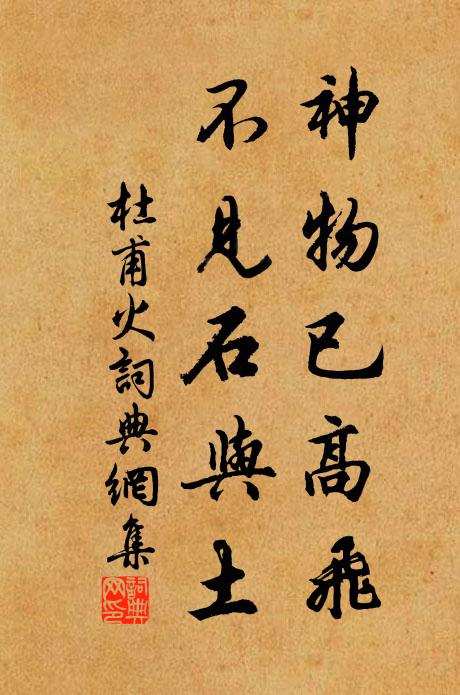 神物已高飛
不見石與土
杜甫火詞典網集
詞典網印